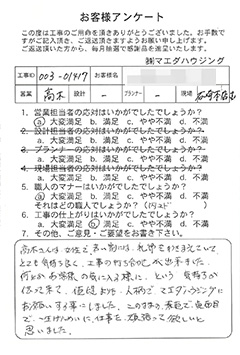 お客様アンケート
この度は工事のご用命を頂きありがとうございました。お手数で
すがご記入頂き、ご返送頂きますようお願い申し上げます。
ご返送頂いた方から、毎月抽選で感謝品を進呈いたします。
㈱マエダハウジング
工事ID 003-01417 お客様名
営業 高木 設計 - プランナー - 現場
1. 営業担当者の応対はいかがでしたでしょうか?
ⓐ 大変満足 b. 満足 c. やや不満 d. 不満
2. 設計担当者の応対はいかがでしたでしょうか?
a. 大変満足 b. 満足 c. やや不満 d. 不満
3. プランナーの応対はいかがでしたでしょうか?
a. 大変満足 b. 満足 c. やや不満 d. 不満
4. 現場担当者の応対はいかがでしたでしょうか?
a. 大変満足 b. 満足 c. やや不満 d. 不満
5. 職人のマナーはいかがでしたでしょうか?
ⓐ 大変満足 b. 満足 c. やや不満 d. 不満
それはどの職人でしょうか?
6. 工事の仕上がりはいかがでしたでしょうか?
ⓐ 大変満足 b. 満足 c. やや不満 d. 不満
7. その他、ご意見・ご要望をお書き下さい。
高木さんは、お若い割には、礼節をわきまえていて
とても気持ち良く、工事の打ち合せが出来ました。
何とかお客様の気に入る様に、という気持ちが
伝って来て、値段よりも人柄で、マエダハウジングに
お願いする事にしました。このままの、素直で、真面目
で、一生けんめいに、仕事を頑張って欲しいと
思いました。